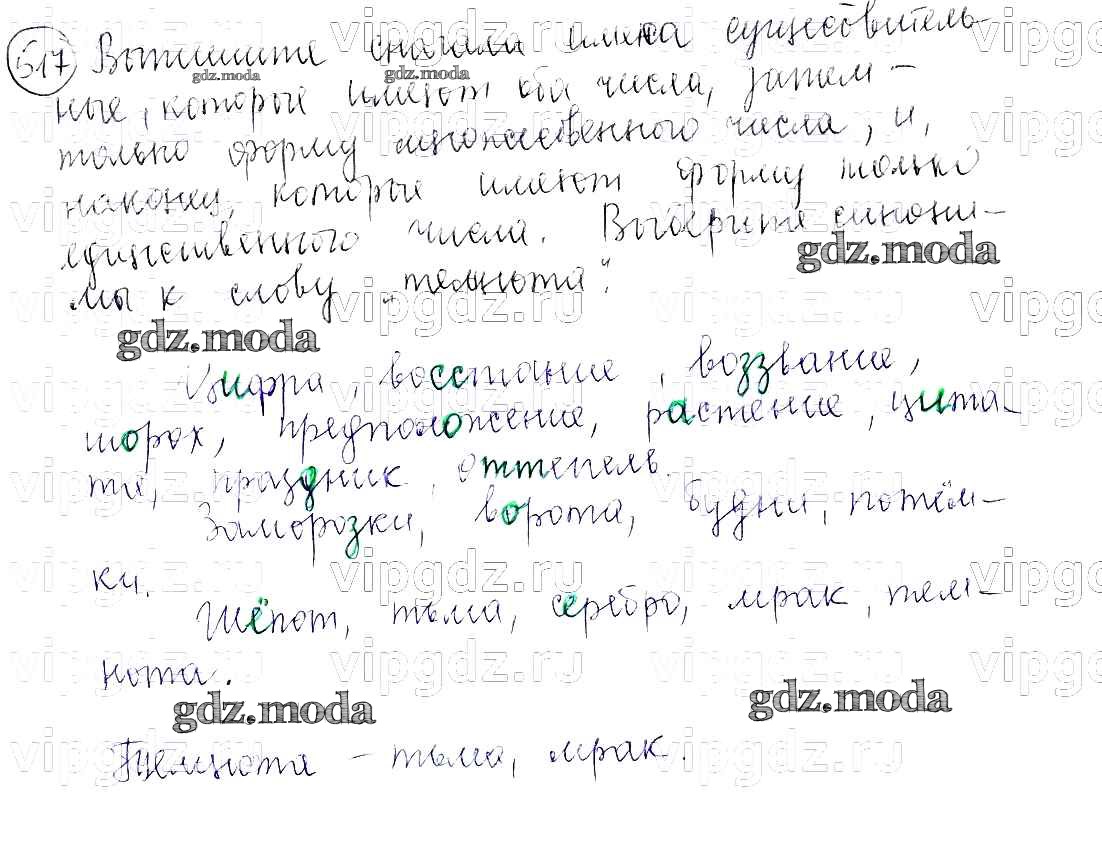 517 Выпишите сначала имена существитель-
ные, которые имеют оба числа, затем -
только форму множественного числа, и,
наконец, которые имеют форму только
единственного числа. Выберите синони-
мы к слову „темнота".
Цифра, восстание, воззвание,
шорох, предположение, растение, цита-
ты, праздник, оттепель.
Заморозки, ворота, будни, потём-
ки.
Шёпот, тьма, серебро, мрак, тем-
нота.
Темнота - тьма, мрак.
gdz.moda
gdz.moda
gdz.moda
gdz.moda
gdz.moda
gdz.moda
vipgdz.ru